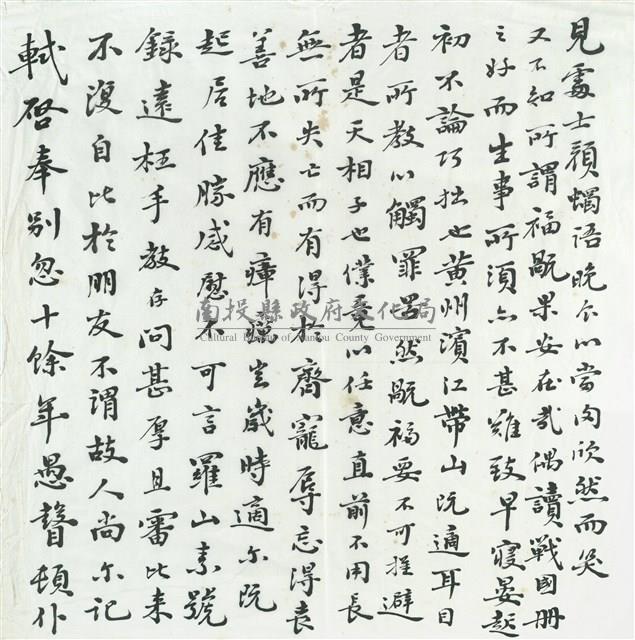 軾啓奉別忽十餘年愚瞽頓仆
不復自比於朋友不謂故人尚尔記
錄遠枉手教存問甚厚且審比來
起居佳勝感慰不可言羅山素號
善地不應有瘴癘豈歲時適尔既
無所失亡而有得於齊寵辱忘得喪
者是天相子也僕竟以任意直前不用長
者所教以觸罪罟然旤福要不可推避
初不論巧拙也黃州濱江帶山既適耳目
之好而生事所須亦不甚難致早寢晏起
又不知所謂福旤果安在哉偶讀戰國册
見處士顏蠋語晚食以當肉欣然而笑
南投縣政府文化局
Cultural Bureau of Nantou County Government